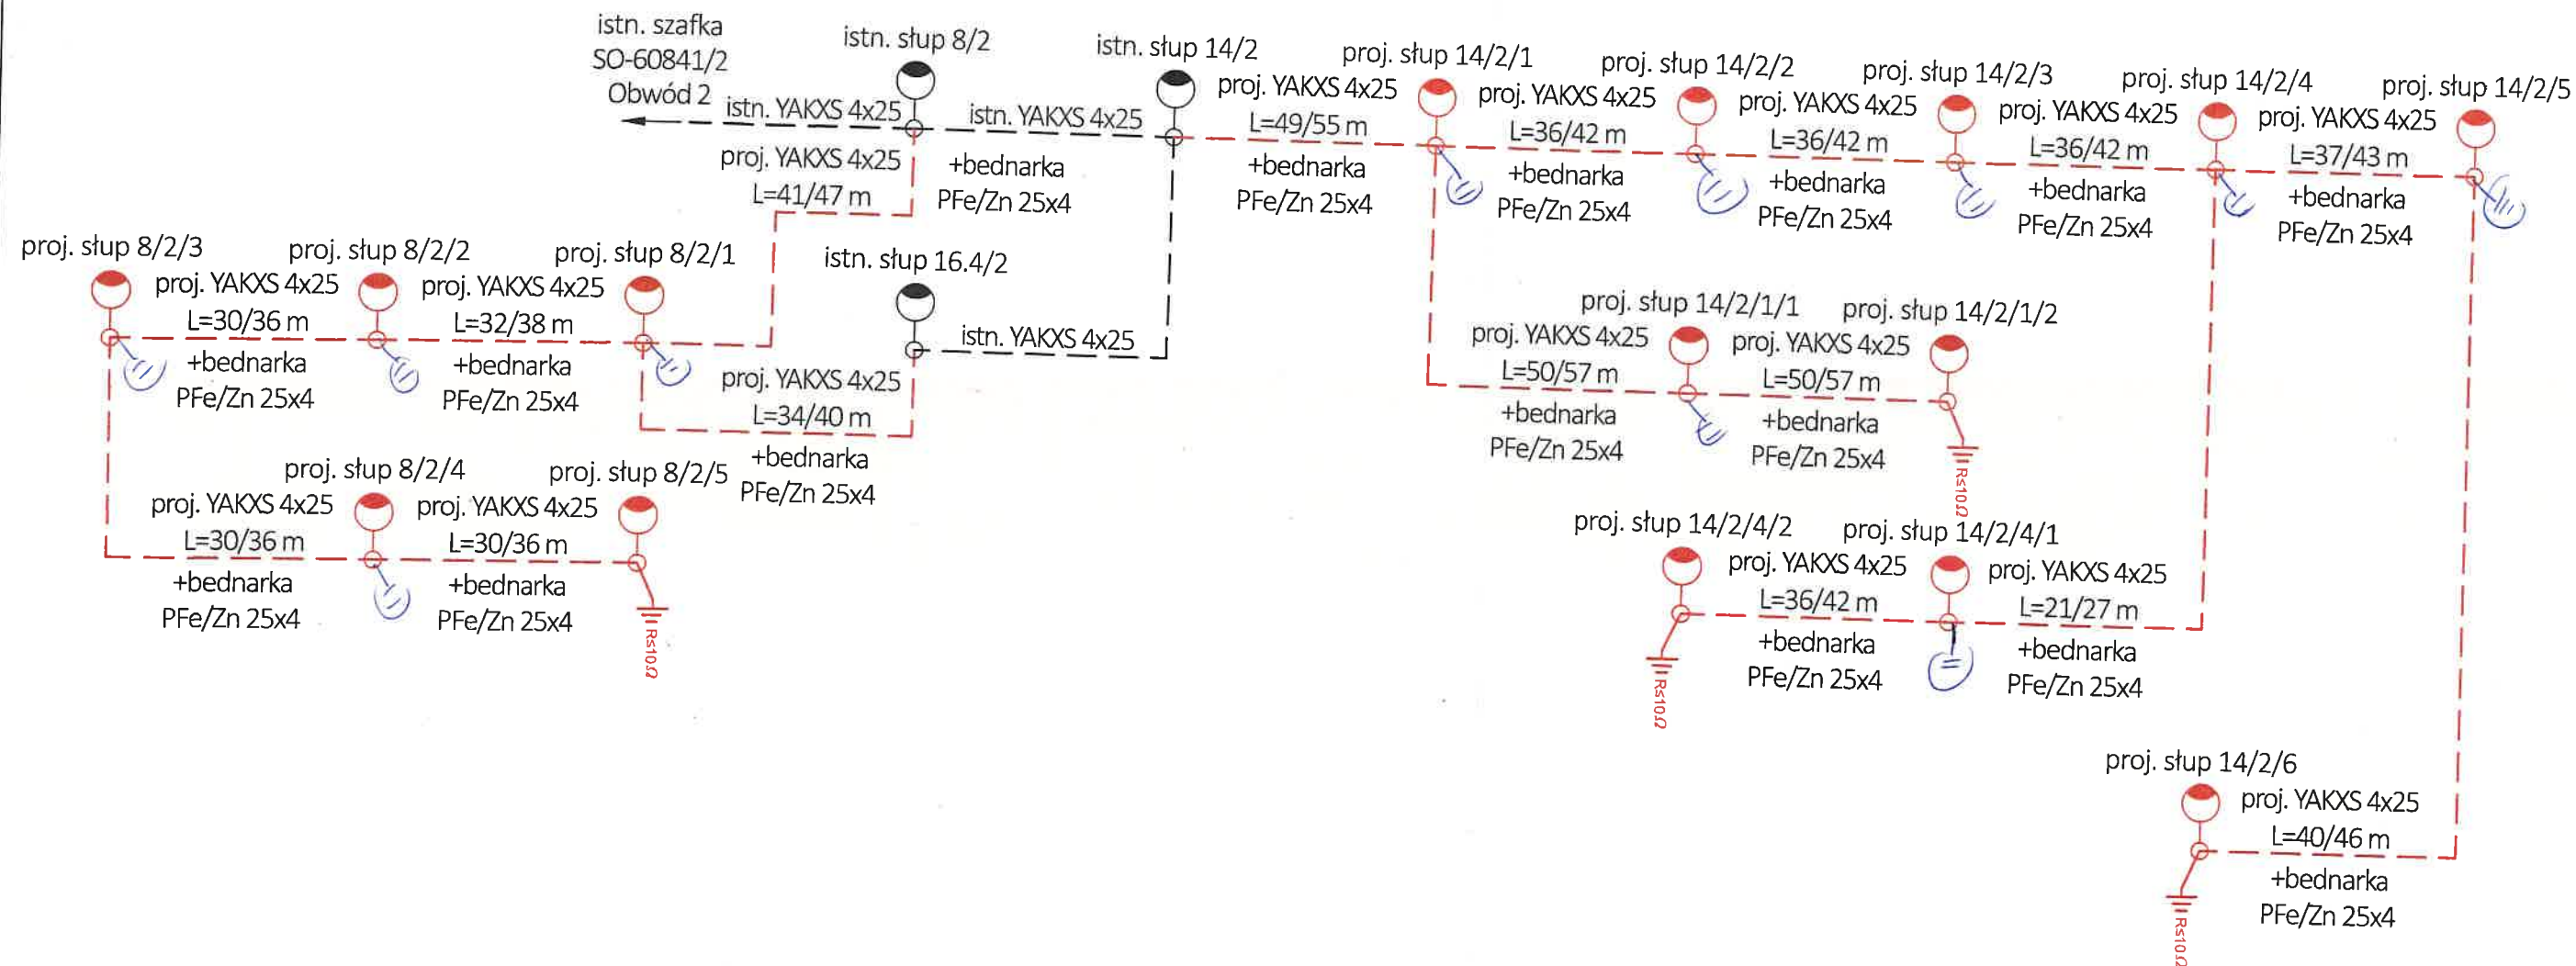 istn. szafka
SO-60841/2
Obwód 2
istn. słup 8/2
istn. YAKXS 4x25
istn. słup 14/2
istn. YAKXS 4x25
+bednarka
PFe/Zn 25x4
proj. YAKXS 4x25
L=41/47 m
proj. słup 14/2/1
proj. YAKXS 4x25
L=49/55 m
+bednarka
PFe/Zn 25x4
proj. słup 14/2/2
proj. YAKXS 4x25
L=36/42 m
+bednarka
PFe/Zn 25x4
proj. słup 14/2/3
proj. YAKXS 4x25
L=36/42 m
+bednarka
PFe/Zn 25x4
proj. słup 14/2/4
proj. YAKXS 4x25
L=36/42 m
+bednarka
PFe/Zn 25x4
proj. słup 14/2/5
proj. YAKXS 4x25
L=37/43 m
+bednarka
PFe/Zn 25x4
proj. słup 8/2/3
proj. YAKXS 4x25
L=30/36 m
+bednarka
PFe/Zn 25x4
proj. słup 8/2/2
proj. YAKXS 4x25
L=32/38 m
+bednarka
PFe/Zn 25x4
proj. słup 8/2/1
istn. słup 16.4/2
istn. YAKXS 4x25
proj. YAKXS 4x25
L=34/40 m
+bednarka
PFe/Zn 25x4
proj. słup 14/2/1/1
proj. YAKXS 4x25
L=50/57 m
+bednarka
PFe/Zn 25x4
proj. słup 14/2/1/2
proj. YAKXS 4x25
L=50/57 m
+bednarka
PFe/Zn 25x4
R≤10Ω
proj. słup 8/2/4
proj. YAKXS 4x25
L=30/36 m
+bednarka
PFe/Zn 25x4
proj. słup 8/2/5
proj. YAKXS 4x25
L=30/36 m
+bednarka
PFe/Zn 25x4
R≤10Ω
proj. słup 14/2/4/2
proj. YAKXS 4x25
L=36/42 m
+bednarka
PFe/Zn 25x4
R≤10Ω
proj. słup 14/2/4/1
proj. YAKXS 4x25
L=21/27 m
+bednarka
PFe/Zn 25x4
proj. słup 14/2/6
proj. YAKXS 4x25
L=40/46 m
+bednarka
PFe/Zn 25x4
R≤10Ω